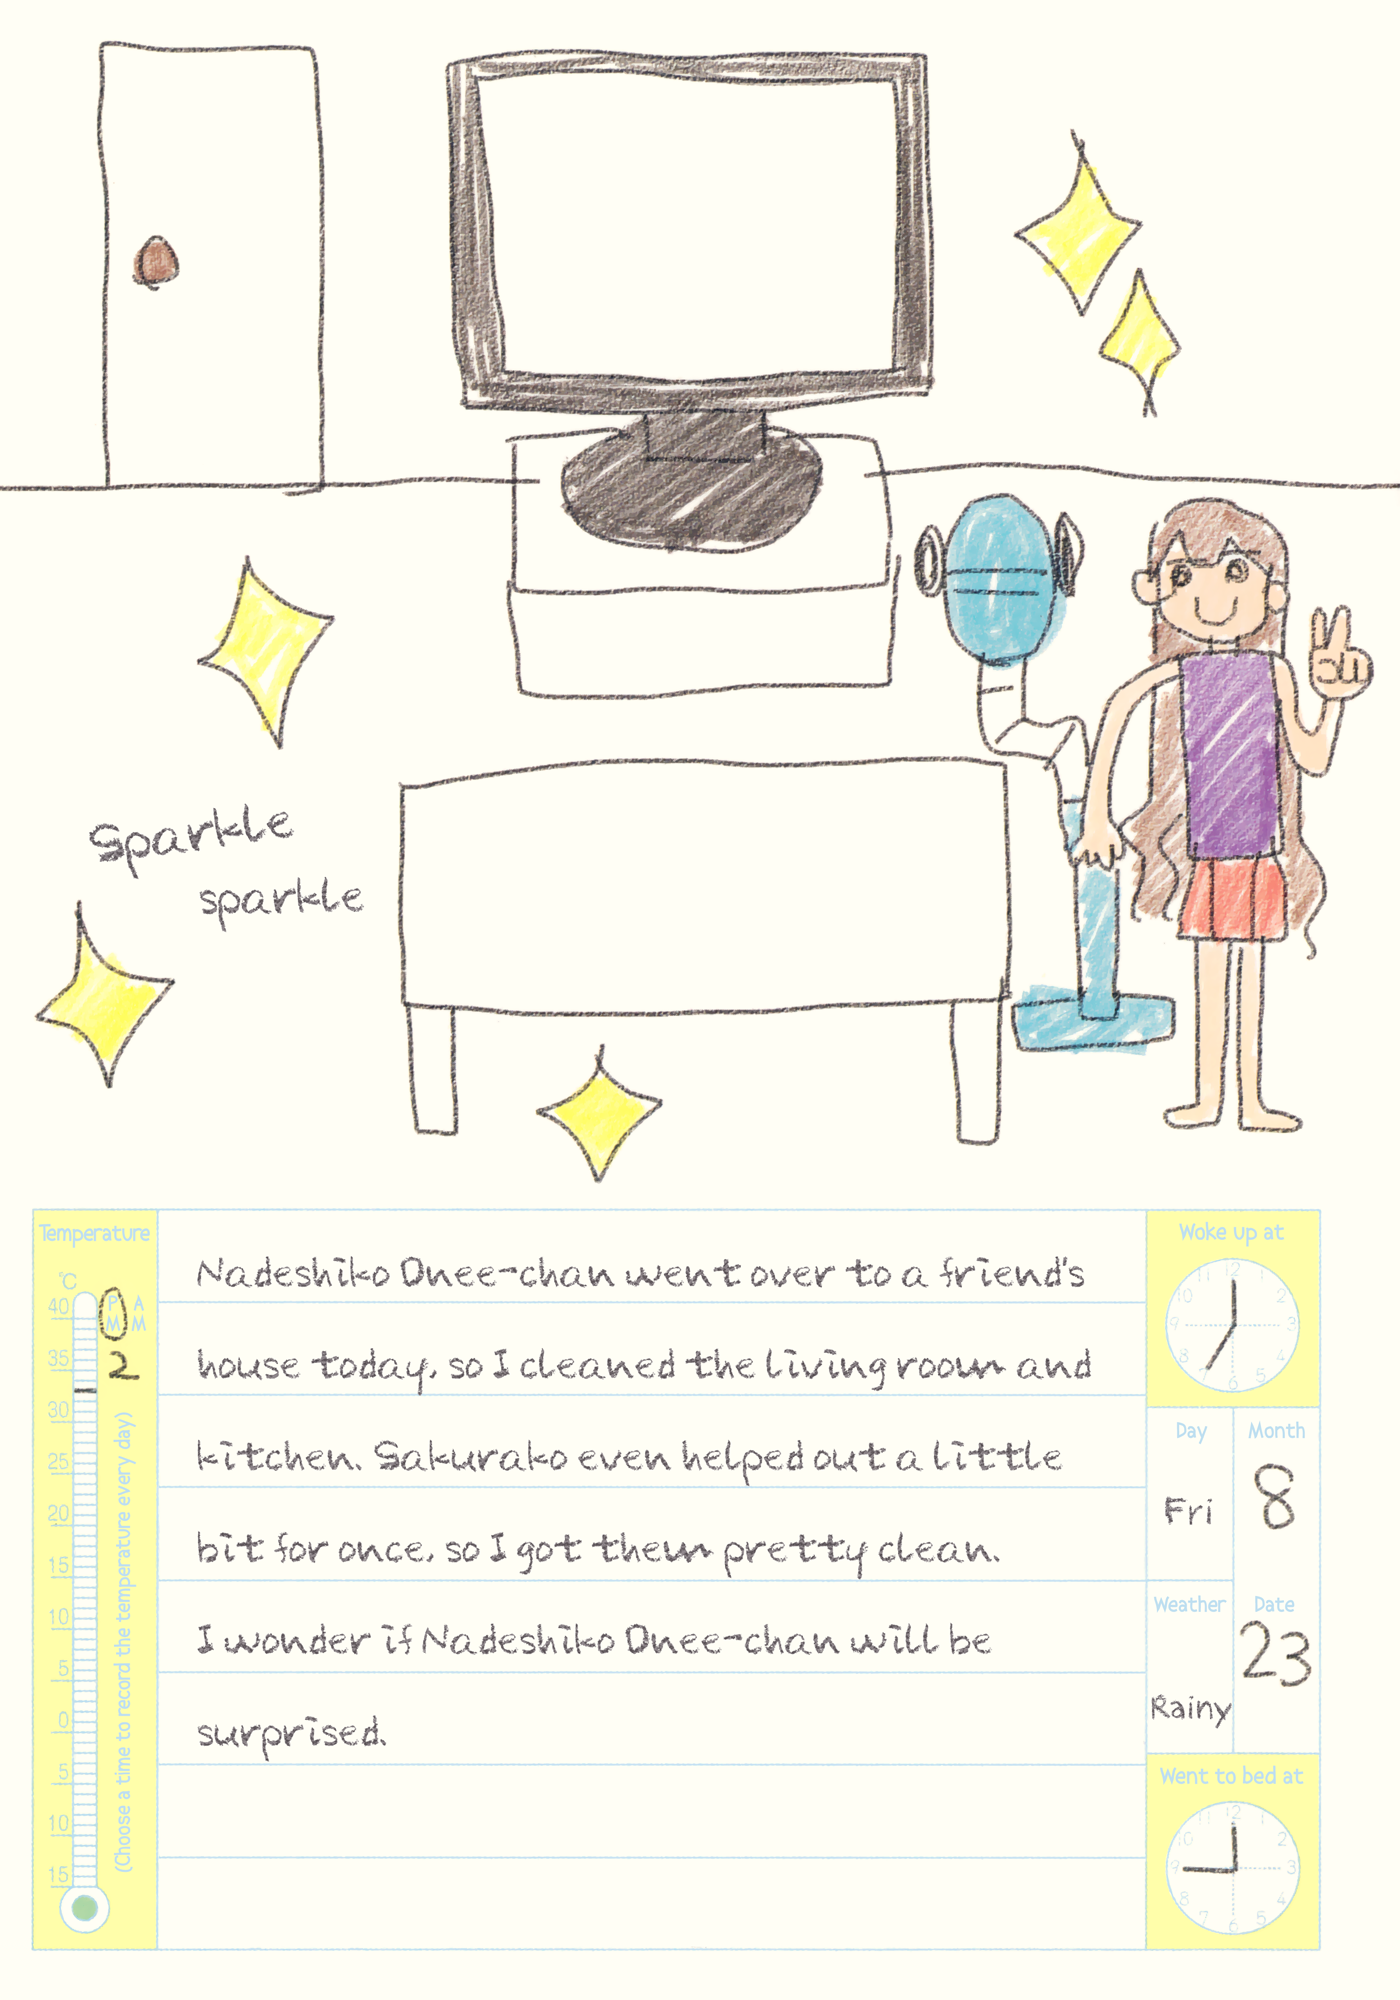 Sparkle
sparkle
Temperature
℃
40
35
30
25
20
15
10
5
0
5
10
15
PM
AM
2
(Choose a time to record the temperature every day)
Nadeshiko Onee-chan went over to a friend's
house today, so I cleaned the living room and
kitchen. Sakurako even helped out a little
bit for once, so I got them pretty clean.
I wonder if Nadeshiko Onee-chan will be
surprised.
Woke up at
12
1
2
3
4
5
6
7
8
9
10
11
Day
Month
Fri
8
Weather
Date
Rainy
23
Went to bed at
12
1
2
3
4
5
6
7
8
9
10
11